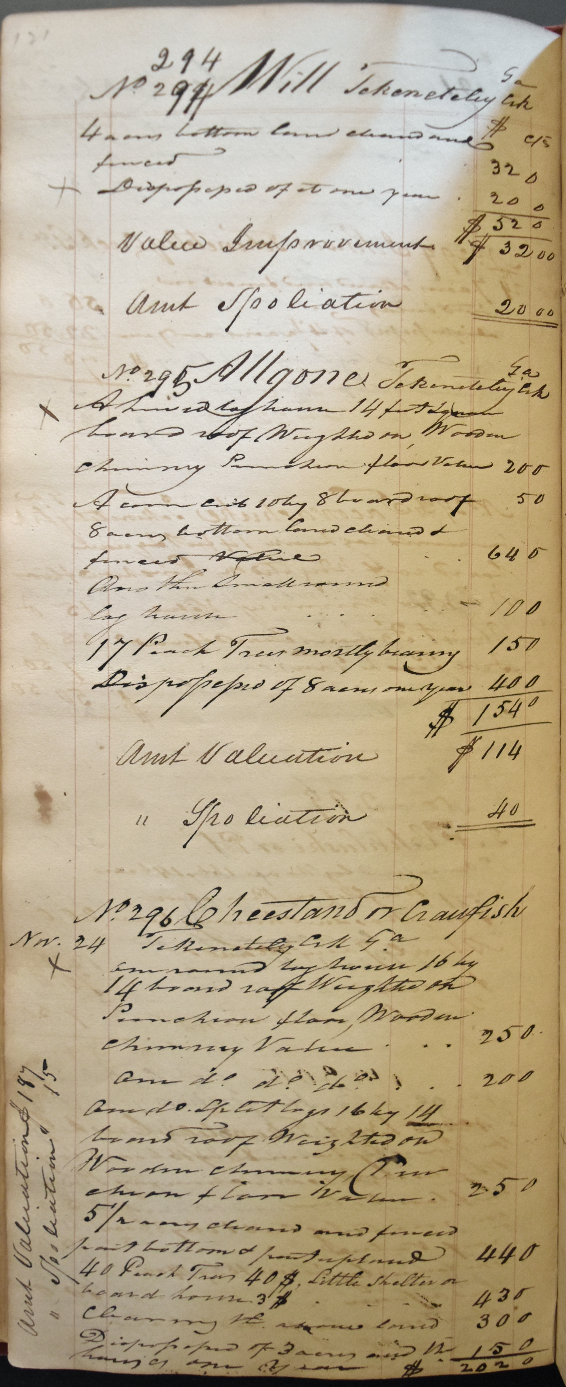 121
294
No 294 Will Tekeneteley Crk Ga
$ cts
4 acres bottom land cleared and
fenced 32 0
x Dispossessed of it one year . 20 0
$ 52 0
Value Improvement $ 32 00
Amt Spoliation 20 00
No 295 Allgone Tekeneteley Crk Ga
x A hewed log house 14 feet square
board roof Weighted on Wooden
chimney Puncheon floor Value 200
A corn crib 10 by 8 board roof 50
8 acres bottom land cleared &
fenced Value . . 640
Another Small round
log house . . . . 100
17 Peach Trees mostly bearing 150
Dispossessed of 8 acres one year 400
$ 1540
Amt Valuation $ 114
" Spoliation 40
No 296 Cheestand or Crawfish
Nov. 24 Tekenetely Crk Ga
x one round log house 16 by
14 board roof Weighted on
Puncheon floor Wooden
chimney Value . . . 250
one do do do . . 200
one do. Split logs 16 by 14
board roof Weighted on
Wooden chimney Pun
cheon floor Value . 250
5 1/2 acres cleared and fenced
part bottom & part upland 440
40 Peach Trees 40$. Little shelter or
board house 3$ . . . 430
clearing the above land 300
Dispossessed of 3 acres and the
houses one year 150
$ 2020
Amt Valuation $ 187
" Spoliation " 15